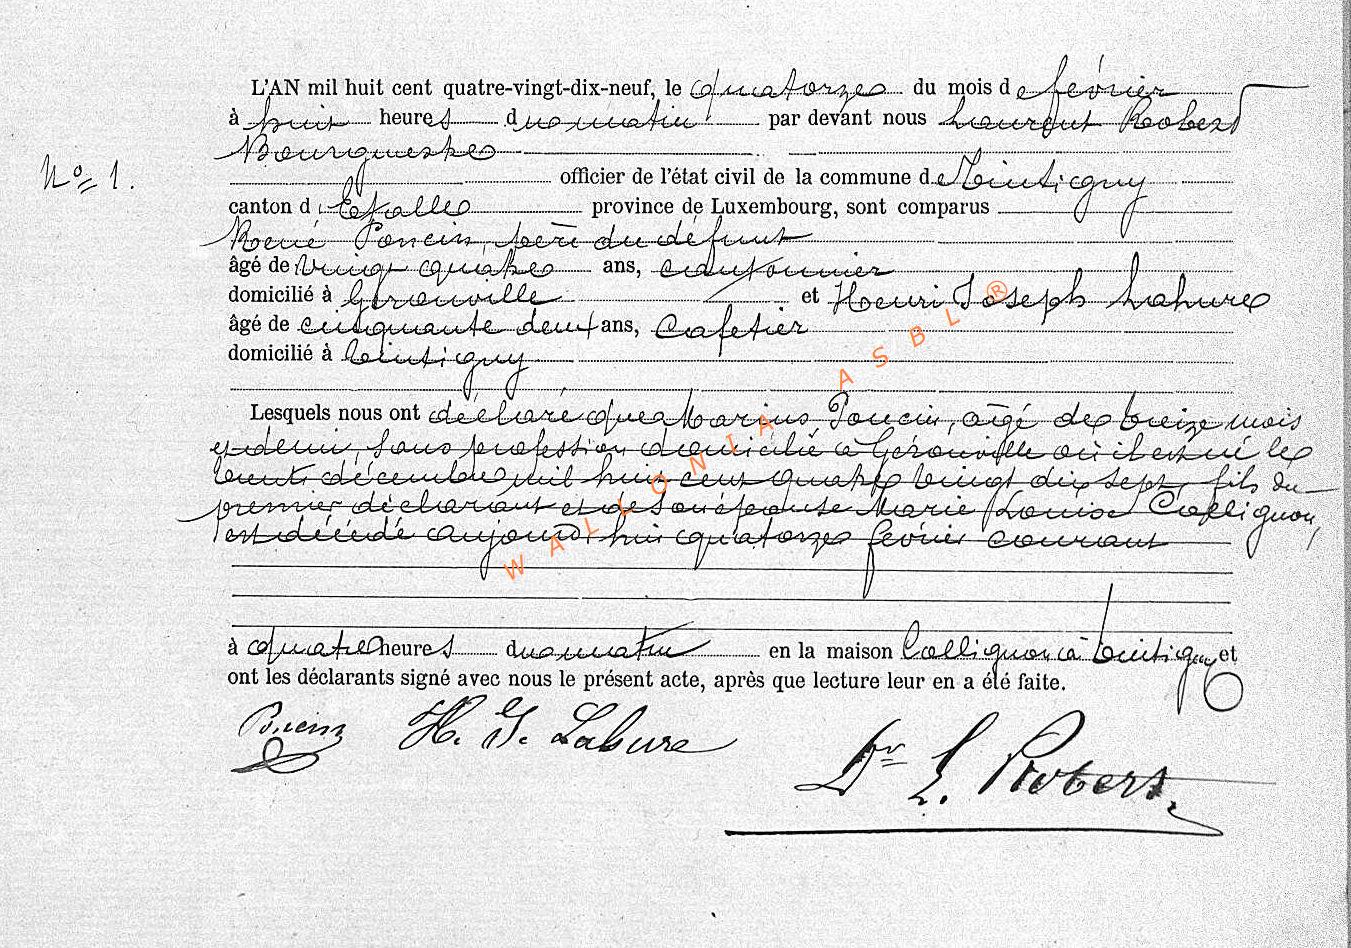 L'AN mil huit cent quatre-vingt-dix-neuf, le quatorze du mois de février
à huit heures du matin par devant nous Laurent Robert
Bourgmestre
N° 1.
officier de l'état civil de la commune de Tintigny
canton d'Etalle province de Luxembourg, sont comparus
René Poncin, père du défunt
âgé de vingt quatre ans, cantonnier
domicilié à Gérouville et Henri Joseph Lahure
âgé de cinquante deux ans, cafetier
domicilié à Tintigny
Lesquels nous ont déclaré que Marius Poncin, âgé de treize mois
et demi, sans profession domicilié à Gérouville où il est né le
trente décembre mil huit cent quatre vingt dix sept, fils du
premier déclarant et de son épouse Marie Louise Collignon,
est décédé aujourd'hui quatorze février courant
à quatre heures du matin en la maison Collignon à Tintigny et
ont les déclarants signé avec nous le présent acte, après que lecture leur en a été faite.
Poncin H. J. Lahure
Dr L. Robert.
WALLONIA ASBL ®